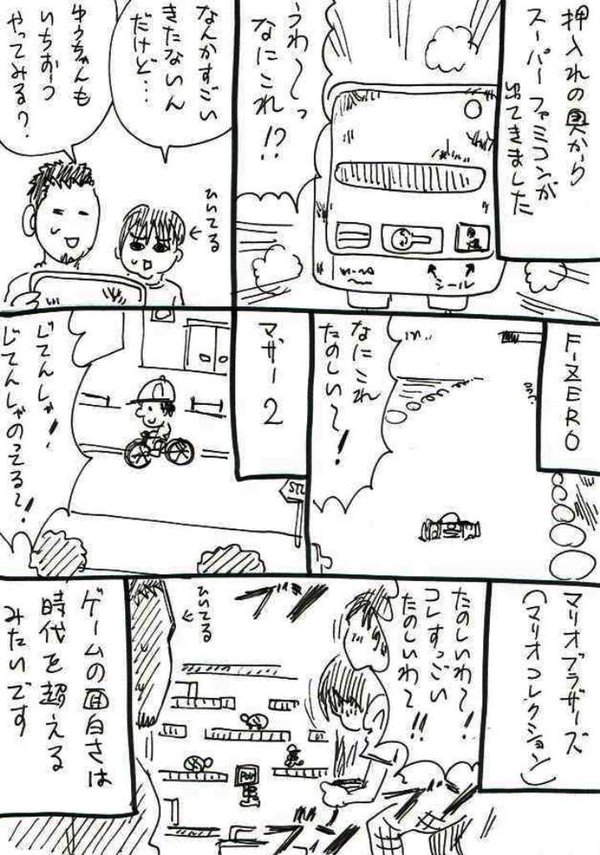 押入れの奥から
スーパーファミコンが
出てきました
シール
うわ〜っ
なにこれ!?
なんかすごい
きたないん
だけど…
ゆうちゃんも
いちおう
やってみる?
ひいてる
F-ZERO
なにこれ
たのしい〜!
マザー2
じてんしゃ!
じてんしゃのってる〜!
マリオブラザーズ
(マリオコレクション)
たのしいわ〜
コレすっごい
たのしいわ〜!!
POW
ひいてる
ゲームの面白さは
時代を超える
みたいです